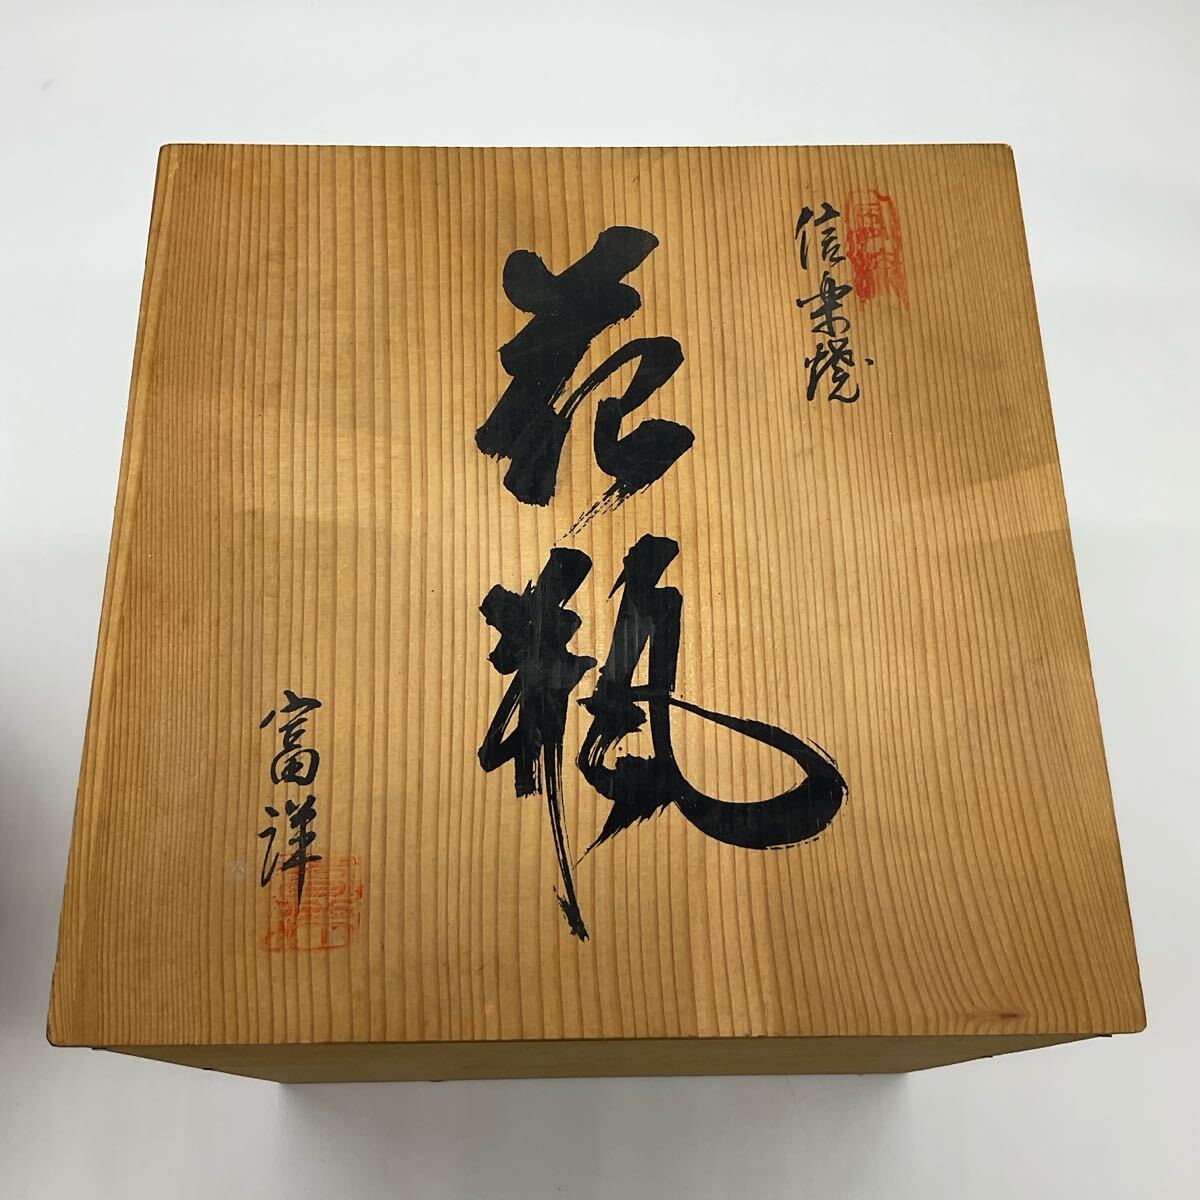 信楽焼
花瓶
富洋